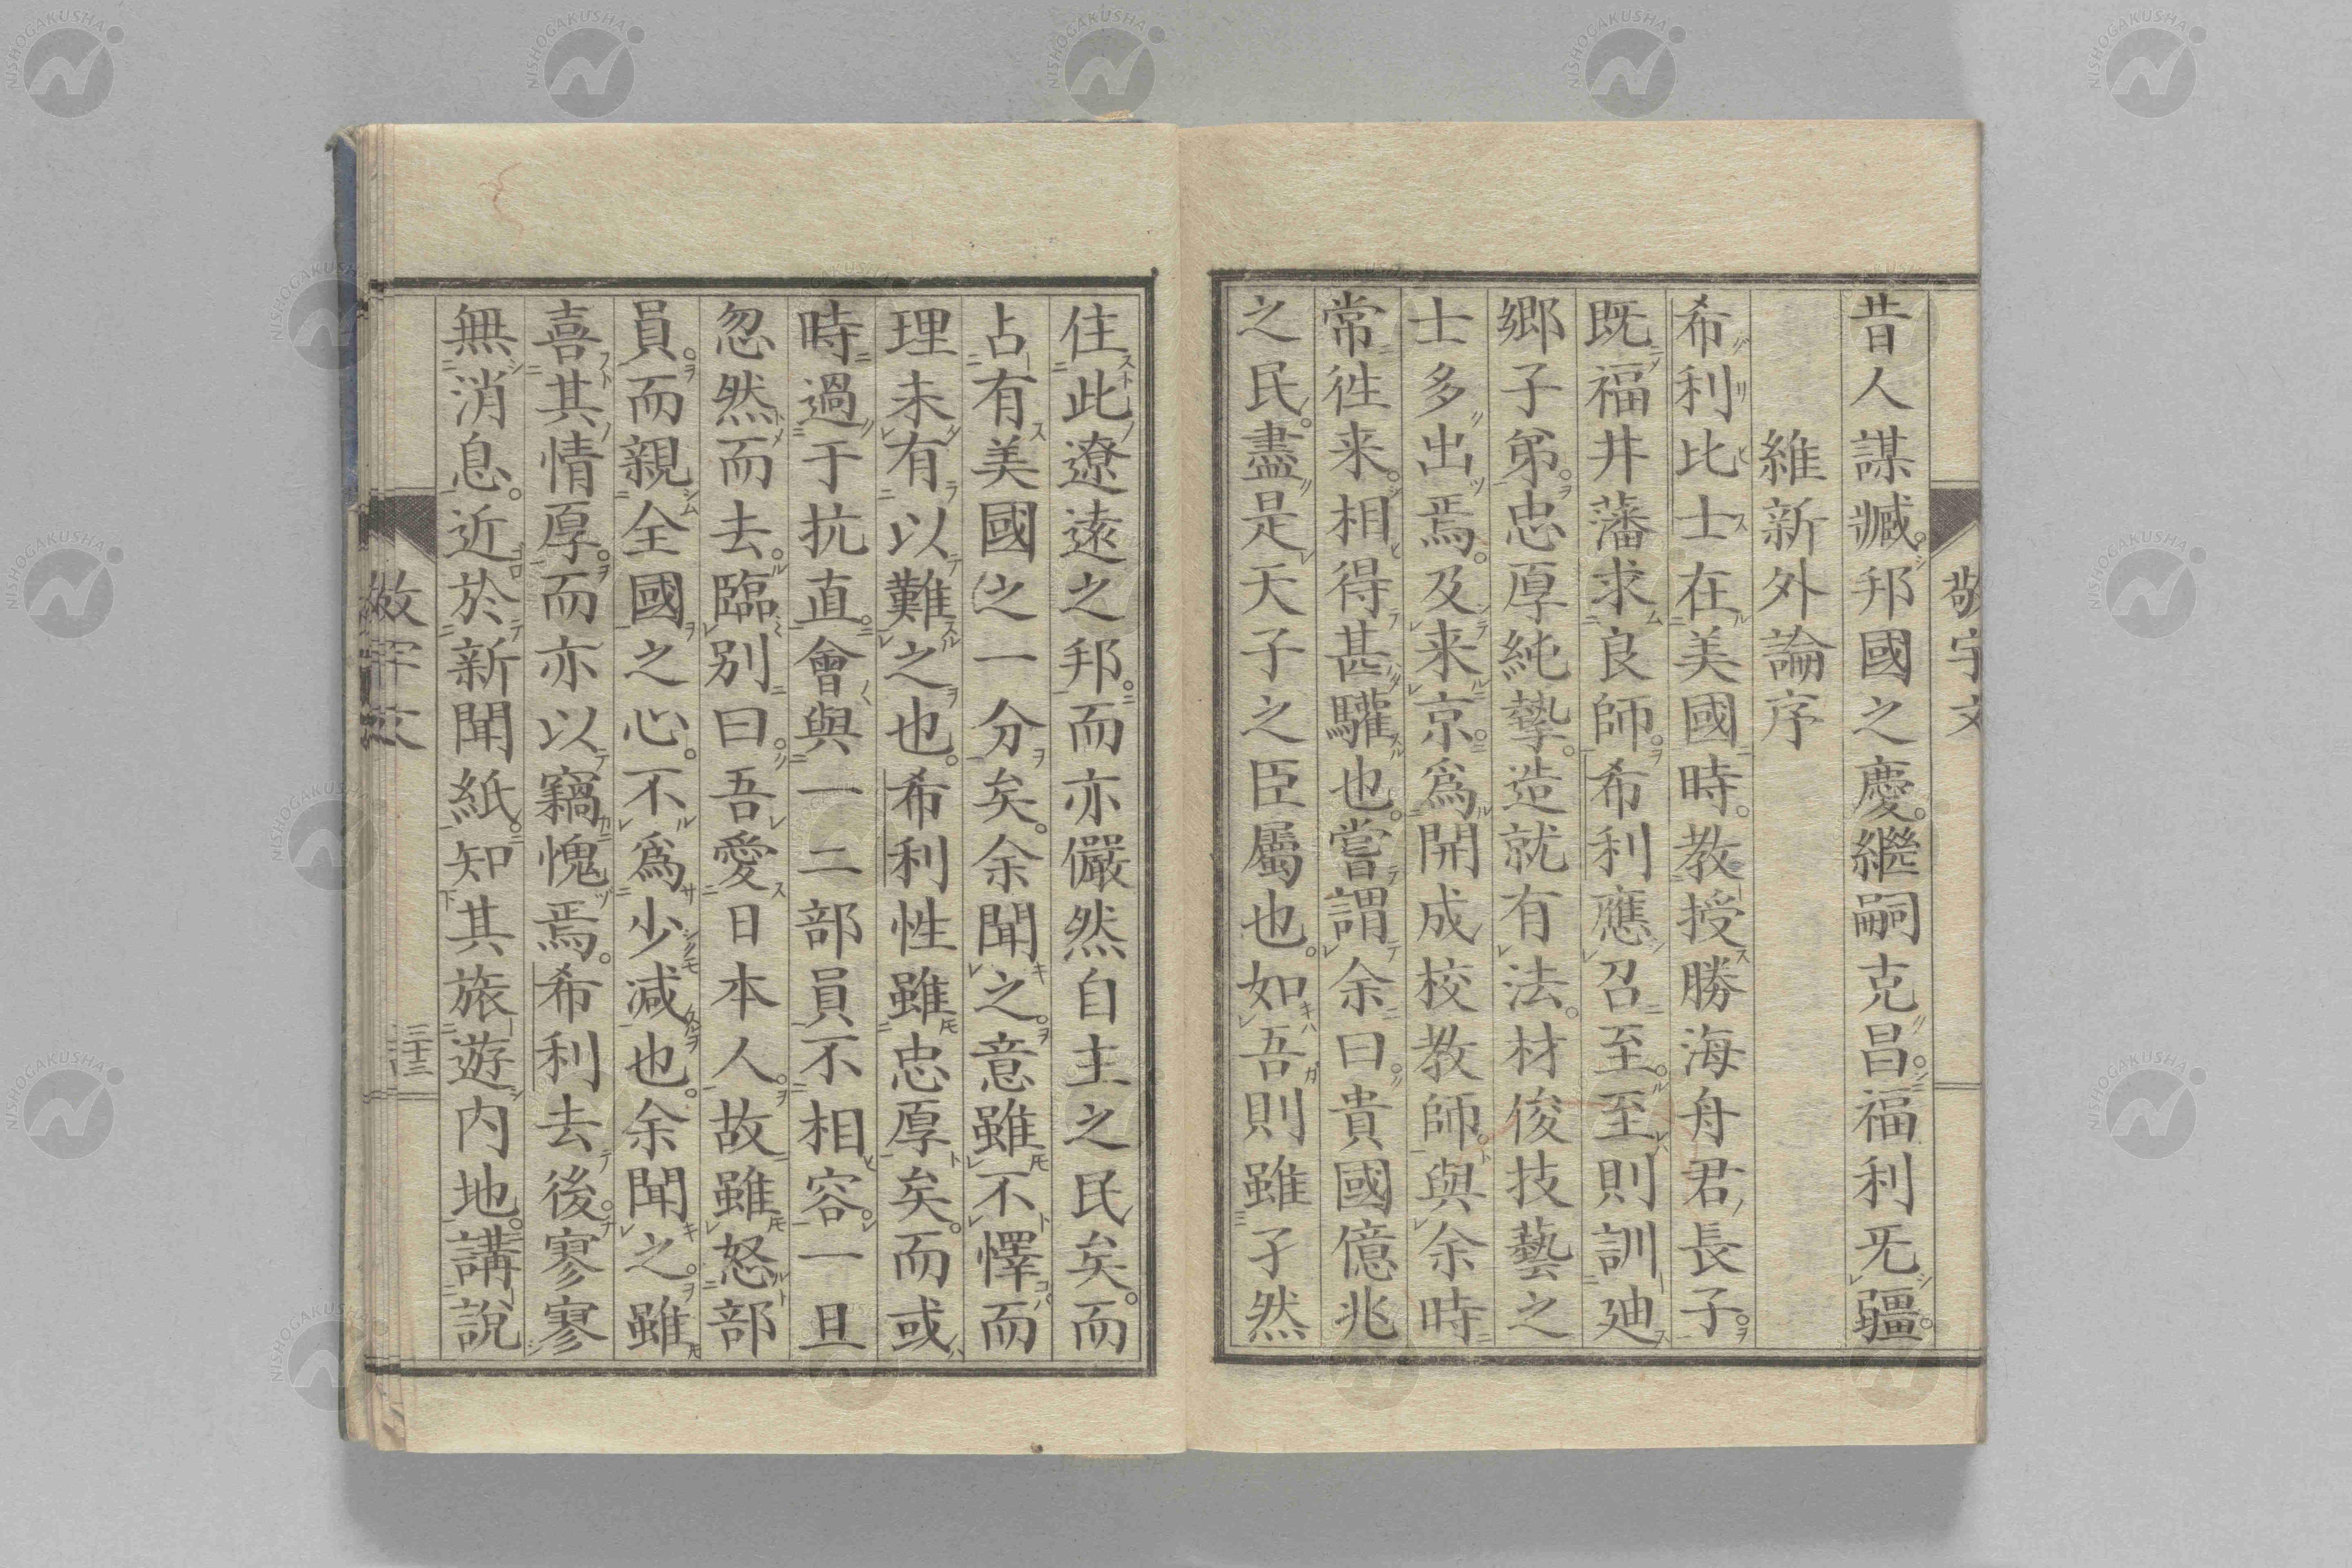 昔人謀臧。邦國之慶。繼嗣克昌。福利无疆。
維新外論序
希利比士在美國時。教授勝海舟君長子。
既福井藩求良師。希利應召至。至則訓廸
鄉子弟。忠厚純摯。造就有法。材俊技藝之
士多出焉。及来京。爲開成校教師。與余時
常徃来。相得甚驩也。嘗謂余曰。貴國億兆
之民。盡是天子之臣屬也。如吾則雖孑然
住此遼遠之邦。而亦儼然自主之民矣。而
占有美國之一分矣。余聞之。意雖不懌。而
理未有以難之也。希利性雖忠厚矣。而或
時過于抗直。會與一二部員不相容。一旦
忽然而去。臨別曰。吾愛日本人。故雖怒部
員。而親全國之心。不爲少減也。余聞之。雖
喜其情厚。而亦以竊愧焉。希利去後。寥寥
無消息。近於新聞紙。知其旅遊內地。講說
敬宇文
三十三
NISHOGAKUSHA